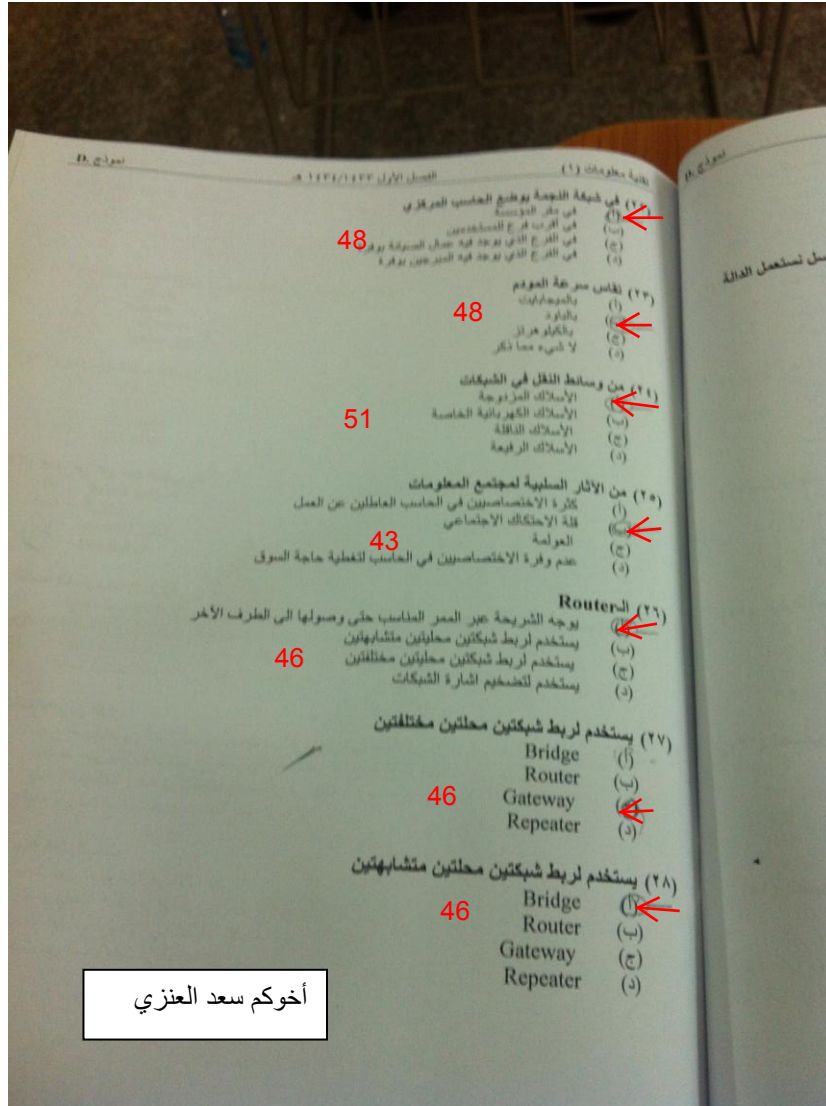 تقنية معلومات (١) الفصل الأول ١٤٣٤/١٤٣٣ هـ نموذج D.
(٢٢) في شبكة النجمة يوضع الحاسب المركزي
(أ) في مقر المؤسسة
(ب) في أقرب فرع للمستخدمين
(ج) في الفرع الذي يوجد فيه عمال الصيانة بوفرة
(د) في الفرع الذي يوجد فيه المبرمجين بوفرة
48
(٢٣) تقاس سرعة المودم
(أ) بالميجابايت
(ب) بالباود
(ج) بالكيلوهرتز
(د) لا شيء مما ذكر
48
(٢٤) من وسائط النقل في الشبكات
(أ) الأسلاك المزدوجة
(ب) الأسلاك الكهربائية الخاصة
(ج) الأسلاك الناقلة
(د) الأسلاك الرفيعة
51
(٢٥) من الآثار السلبية لمجتمع المعلومات
(أ) كثرة الاختصاصيين في الحاسب العاطلين عن العمل
(ب) قلة الاحتكاك الاجتماعي
(ج) العولمة
(د) عدم وفرة الاختصاصيين في الحاسب لتغطية حاجة السوق
43
(٢٦) الـRouter
(أ) يوجه الشريحة عبر الممر المناسب حتى وصولها الى الطرف الآخر
(ب) يستخدم لربط شبكتين محليتين متشابهتين
(ج) يستخدم لربط شبكتين محليتين مختلفتين
(د) يستخدم لتضخيم اشارة الشبكات
46
(٢٧) يستخدم لربط شبكتين محلتين مختلفتين
(أ) Bridge
(ب) Router
(ج) Gateway
(د) Repeater
46
(٢٨) يستخدم لربط شبكتين محلتين متشابهتين
(أ) Bridge
(ب) Router
(ج) Gateway
(د) Repeater
46
أخوكم سعد العنزي
نموذج D.
نستعمل الدالة